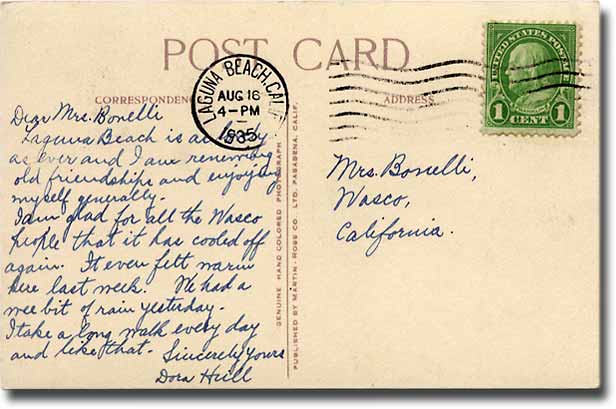 POST CARD
CORRESPONDENCE
ADDRESS
LAGUNA BEACH, CALIF.
AUG 16
4-PM
1935
UNITED STATES POSTAGE
1 CENT 1
Dear Mrs. Bonelli
Laguna Beach is as
as ever and I am renewing
old friendships and enjoying
myself generally.
I am glad for all the Wasco
people that it has cooled off
again. It even felt warm
here last week. We had a
wee bit of rain yesterday.
I take a long walk every day
and like that. Sincerely yours
Dora Hill
GENUINE HAND COLORED PHOTOGRAPH
PUBLISHED BY MARTIN-ROSS CO. LTD. PASADENA, CALIF.
Mrs. Bonelli,
Wasco,
California.